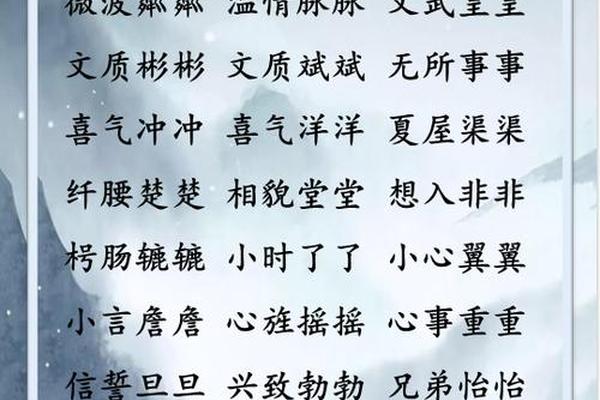 微波粼粼 温情脉脉 文武皇皇
文质彬彬 文质斌斌 无所事事
喜气冲冲 喜气洋洋 夏屋渠渠
纤腰楚楚 相貌堂堂 想入非非
枵肠辘辘 小时了了 小心翼翼
小言詹詹 心旌摇摇 心事重重
信誓旦旦 兴致勃勃 兄弟怡怡